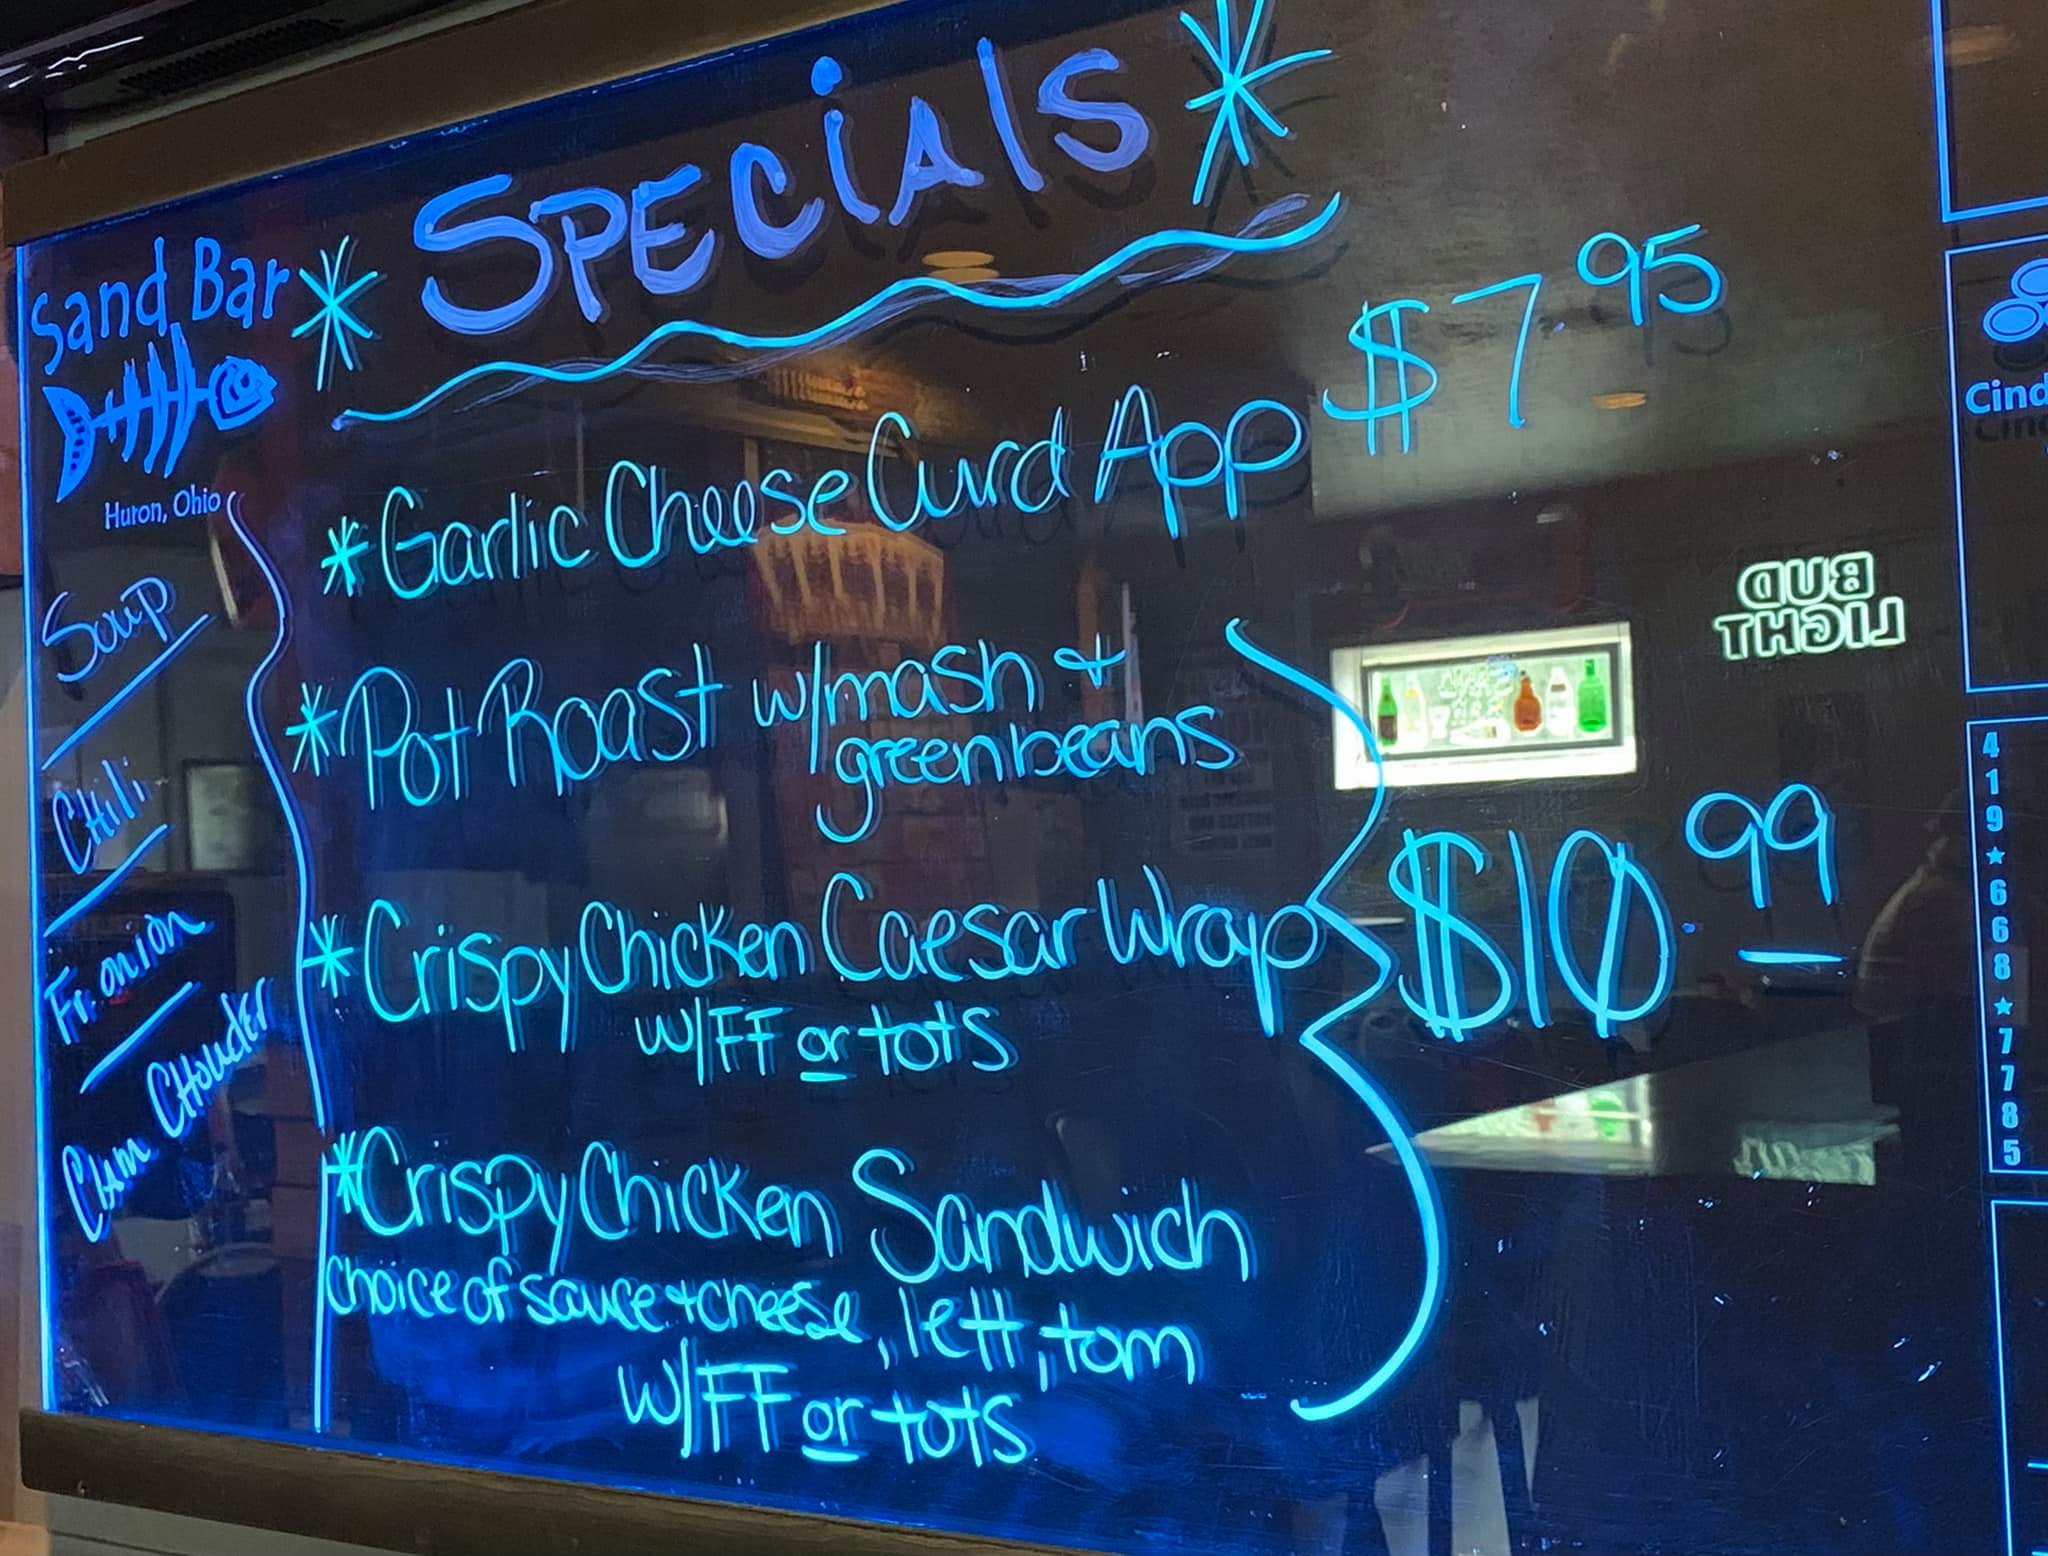 * SPECiAlS *
Sand Bar
Huron, Ohio
Soup
CHili
Fr. onion
Clam CHowdEr
* Garlic Cheese Curd App $7.95
* Pot Roast w/mash +
green beans
* Crispy Chicken Caesar Wrap
w/FF or tots
$10.99
* Crispy Chicken Sandwich
choice of sauce + cheese, lett, tom
w/FF or tots
BUD
LIGHT
Cind
419★668★7785